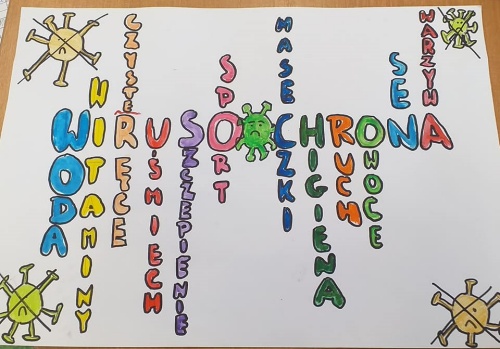 WIRUSOCHRONA
WODA
WITAMINY
CZYSTE RĘCE
UŚMIECH
SZCZEPIENIE
SPORT
MASECZKI
HIGIENA
RUCH
OWOCE
SEN
WARZYWA